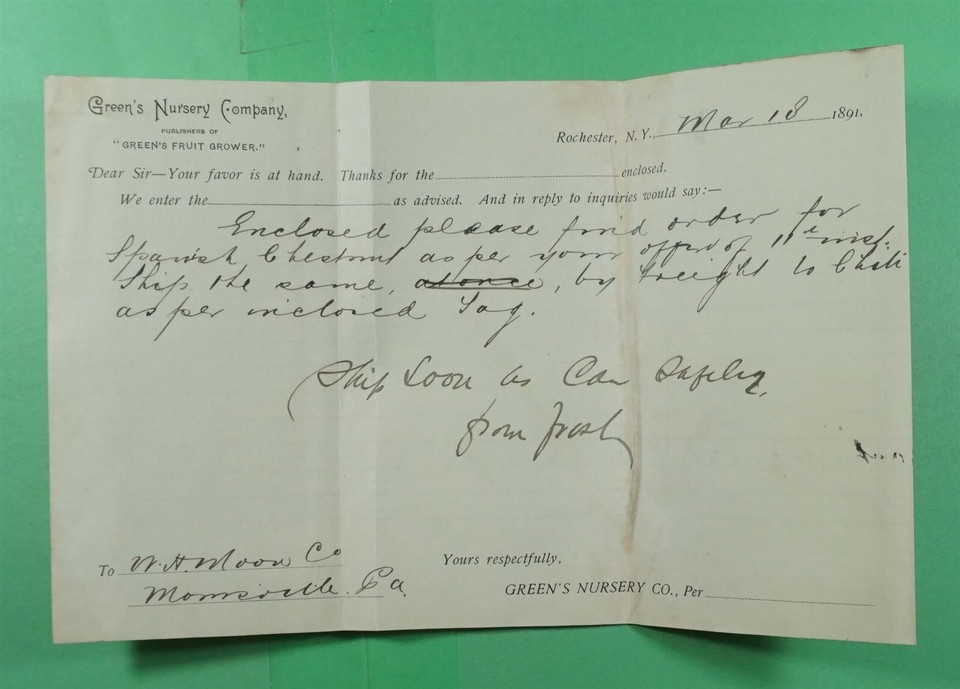 Green's Nursery Company,
PUBLISHERS OF
"GREEN'S FRUIT GROWER."
Rochester, N. Y., Mar 18 1891.
Dear Sir—Your favor is at hand. Thanks for the enclosed.
We enter the as advised. And in reply to inquiries would say:—
Enclosed please find order for
Spanish Chestnut as per your offer of 11th inst.
Ship the same, at once, by freight to Chili
as per inclosed Tag.
Ship Soon as Can Safely
from frost
To W. H. Moon Co
Morrisville. Pa.
Yours respectfully,
GREEN'S NURSERY CO., Per